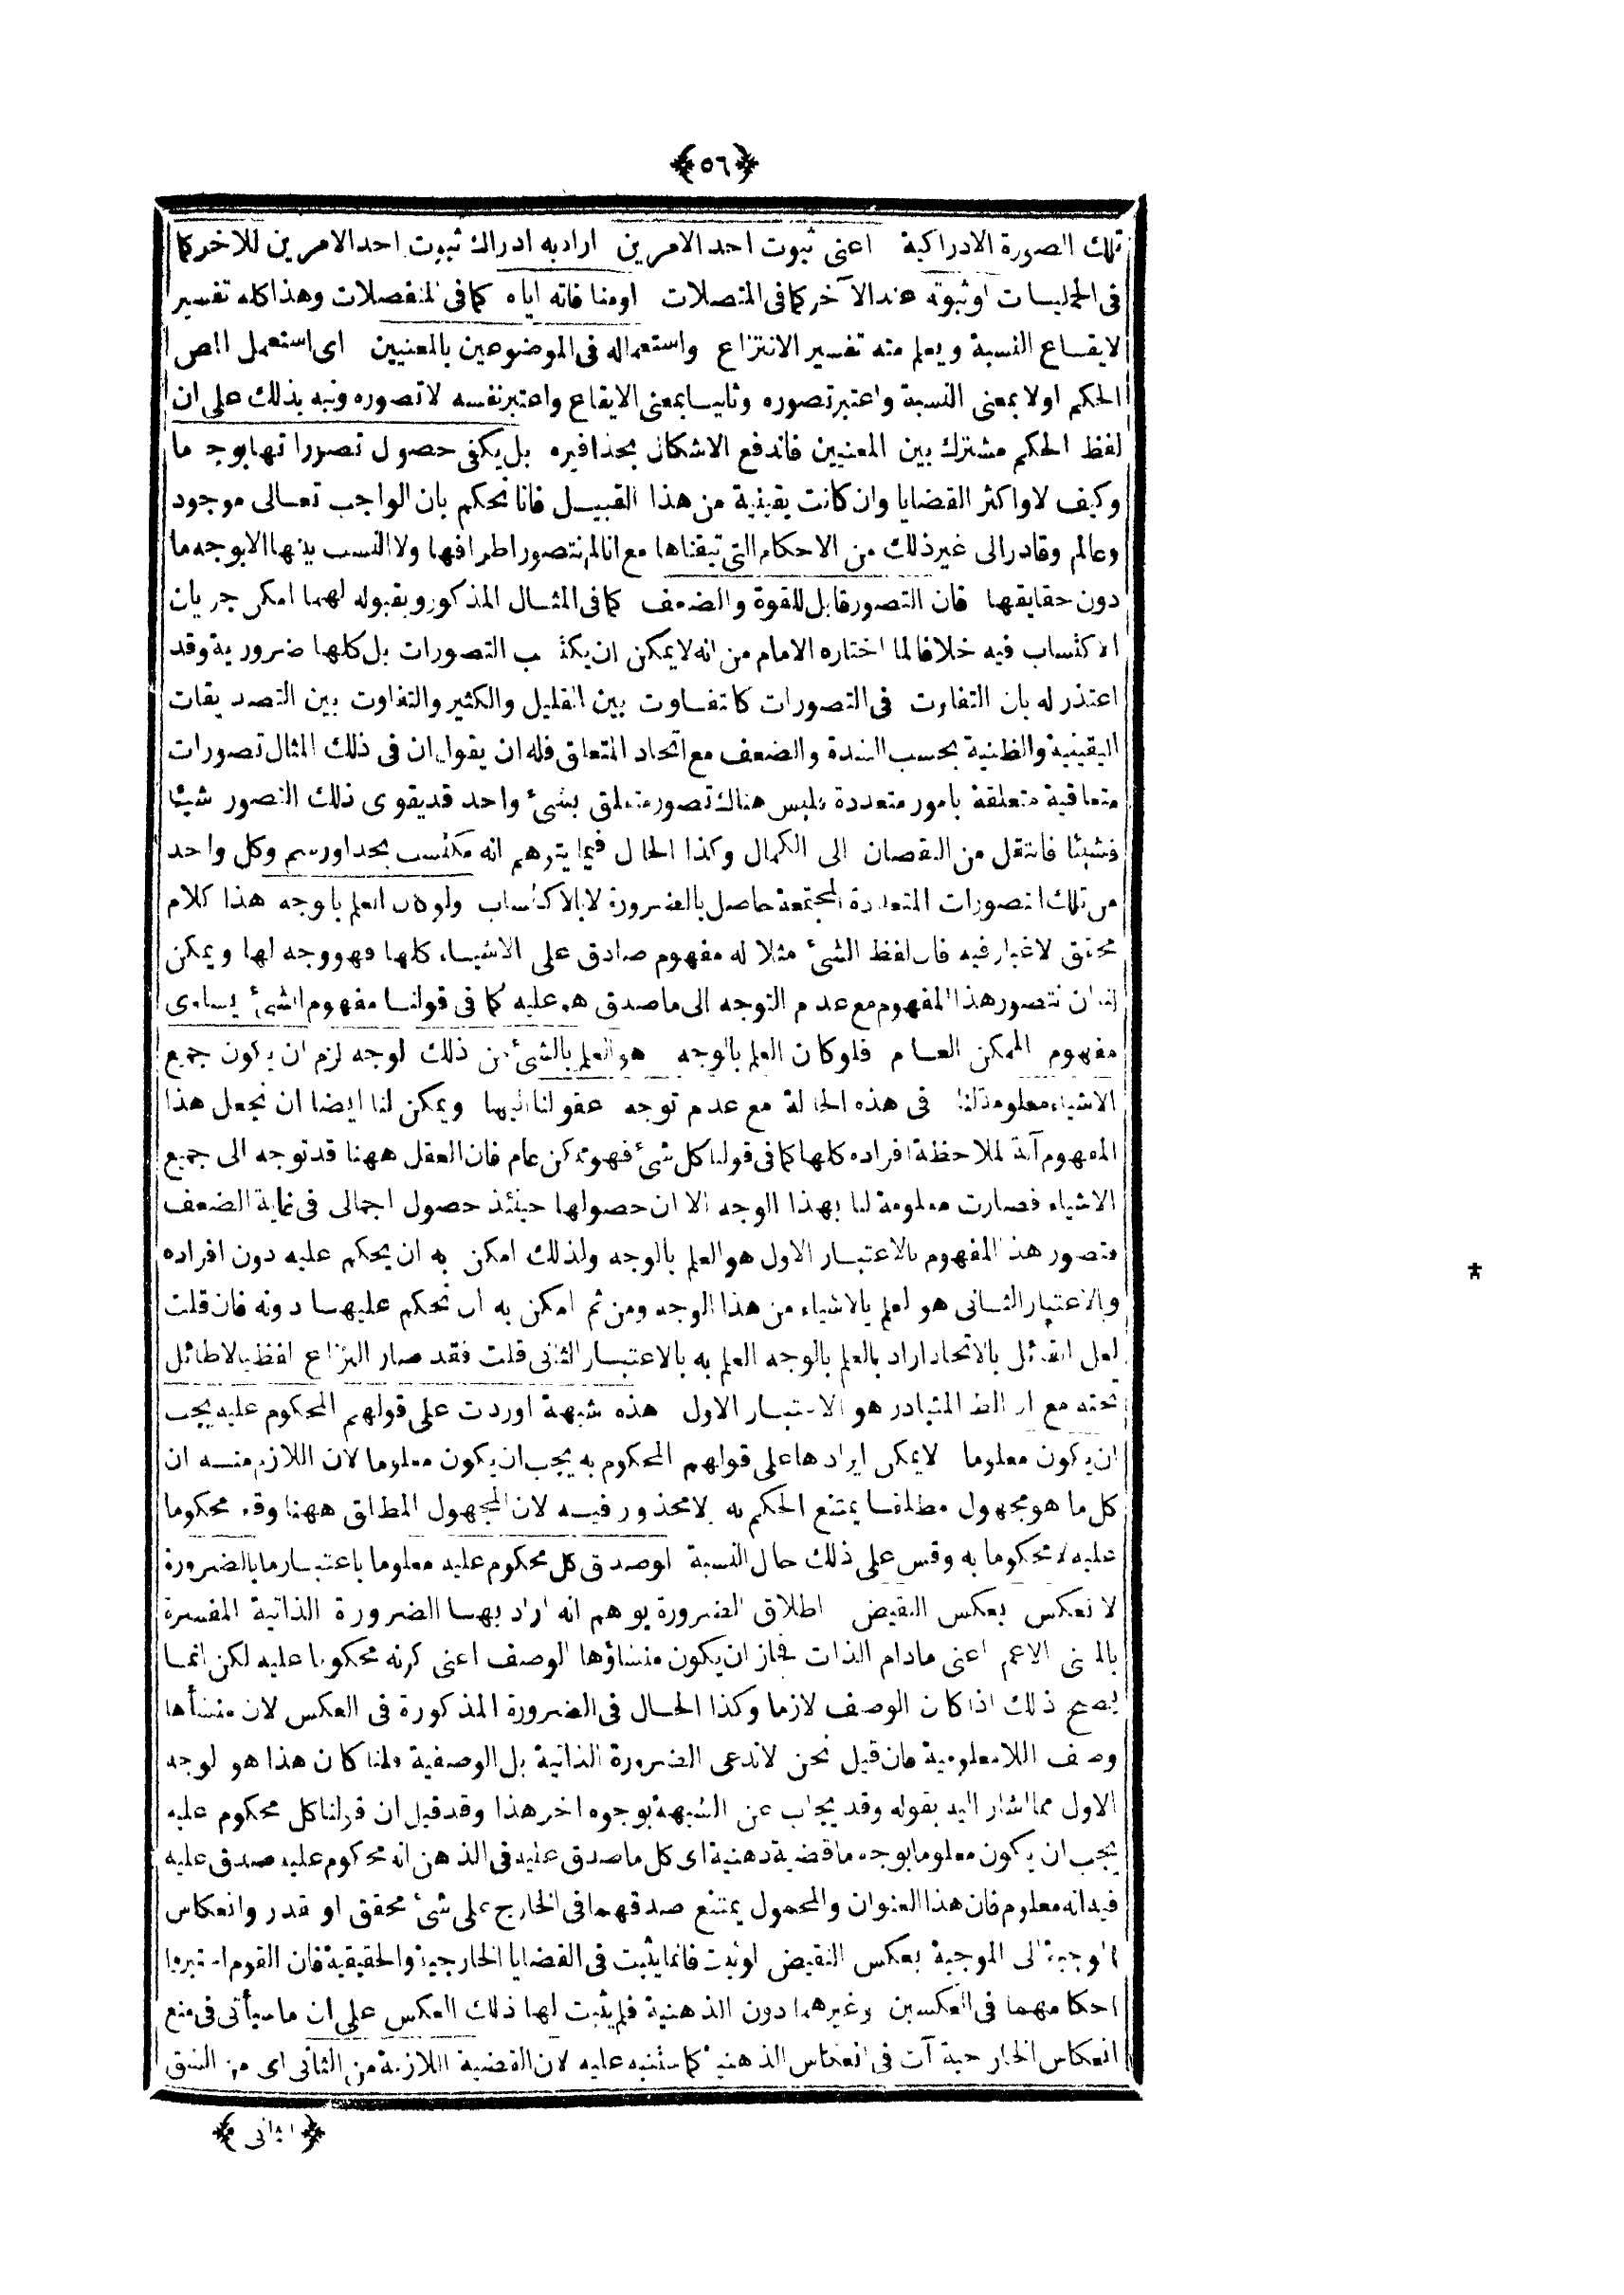 ﴿٥٦﴾
تلك الصورة الادراكية اعنى ثبوت احد الامرين اراد به ادراك ثبوت احد الامرين للاخر كما
فى الحمليات او ثبوته عند الآخر كما فى المتصلات او منافاته اياه كما فى المنفصلات وهذا كله تفسير
لايقاع النسبة ويعلم منه تفسير الانتزاع واستعماله فى الموضوعين بالمعنيين اى استعمل المص
الحكم اولا بمعنى النسبة واعتبر تصوره وثانيا بمعنى الايقاع واعتبر نفسه لا تصوره ونبه بذلك على ان
لفظ الحكم مشترك بين المعنيين فاندفع الاشكال بحذافيره بل يكفى حصول تصوراتها بوجه ما
وكيف لا واكثر القضايا وان كانت يقينية من هذا القبيل فانا نحكم بان الواجب تعالى موجود
وعالم وقادر الى غير ذلك من الاحكام التى تيقناها مع انا لم نتصور اطرافها ولا النسب بينها الا بوجه ما
دون حقايقها فان التصور قابل للقوة والضعف كما فى المثال المذكور وبقبوله لهما امكن جريان
الاكتساب فيه خلافا لما اختاره الامام من انه لا يمكن ان يكتسب التصورات بل كلها ضرورية وقد
اعتذر له بان التفاوت فى التصورات كا تفاوت بين القليل والكثير والتفاوت بين التصديقات
اليقينية والظنية بحسب الشدة والضعف مع اتحاد المتعلق فله ان يقول ان فى ذلك المثال تصورات
متعاقبة متعلقة بامور متعددة فليس هناك تصور متعلق بشئ واحد قد يقوى ذلك التصور شيئا
فشيئا فانتقل من النقصان الى الكمال وكذا الحال فيما يتوهم انه مكتسب بحد او رسم وكل واحد
من تلك التصورات المتعددة المجتمعة حاصل بالضرورة لا بالاكتساب ولو كان العلم بالوجه هذا كلام
محقق لا غبار فيه فان لفظ الشئ مثلا له مفهوم صادق على الاشياء كلها فهو وجه لها ويمكن
لنا ان نتصور هذا المفهوم مع عدم التوجه الى ما صدق هو عليه كما فى قولنا مفهوم الشئ يساوى
مفهوم الممكن العام فلو كان العلم بالوجه هو العلم بالشئ من ذلك الوجه لزم ان يكون جميع
الاشياء معلومة لنا فى هذه الحالة مع عدم توجه عقولنا اليها ويمكن لنا ايضا ان نجعل هذا
المفهوم آلة لملاحظة افراده كلها كما فى قولنا كل شئ فهو ممكن عام فان العقل ههنا قد توجه الى جميع
الاشياء فصارت معلومة لنا بهذا الوجه الا ان حصولها حينئذ حصول اجمالى فى غاية الضعف
فتصور هذا المفهوم بالاعتبار الاول هو العلم بالوجه ولذلك امكن به ان يحكم عليه دون افراده
وبالاعتبار الثانى هو العلم بالاشياء من هذا الوجه ومن ثم امكن به ان نحكم عليها دونه فان قلت
لعل القائل بالاتحاد اراد بالعلم بالوجه العلم به بالاعتبار الثانى قلت فقد صار النزاع لفظيا لا طائل
تحته مع ان الظ المتبادر هو الاعتبار الاول هذه شبهة اوردت على قولهم المحكوم عليه يجب
ان يكون معلوما لا يمكن ايرادها على قولهم المحكوم به يجب ان يكون معلوما لان اللازم منه ان
كل ما هو مجهول مطلقا يمتنع الحكم به ولا محذور فيه لان المجهول المطلق ههنا وقع محكوما
عليه لا محكوما به وقس على ذلك حال النسبة لو صدق كل محكوم عليه معلوما باعتبار ما بالضرورة
لانعكس بعكس النقيض اطلاق الضرورة يوهم انه اراد بها الضرورة الذاتية المفسرة
بالمعنى الاعم اعنى مادام الذات فجاز ان يكون منشاؤها الوصف اعنى كونه محكوما عليه لكن انما
يصح ذلك اذا كان الوصف لازما وكذا الحال فى الضرورة المذكورة فى العكس لان منشأها
وصف اللامعلومية فان قيل نحن لا ندعى الضرورة الذاتية بل الوصفية قلنا كان هذا هو لوجه
الاول مما اشار اليه بقوله وقد يجاب عن الشبهة بوجوه اخر هذا وقد قيل ان قولنا كل محكوم عليه
يجب ان يكون معلوما بوجه ما قضية ذهنية اى كل ما صدق عليه فى الذهن انه محكوم عليه صدق عليه
فيه انه معلوم فان هذا العنوان والمحمول يمتنع صدقهما فى الخارج على شئ محقق او مقدر وانعكاس
الموجبة الى الموجبة بعكس النقيض لو ثبت فانما يثبت فى القضايا الخارجية والحقيقية فان القوم اعتبروا
احكامهما فى العكسين وغيرهما دون الذهنية فلم يثبت لها ذلك العكس على ان ما سيأتى فى منع
انعكاس الخارجية آت فى انعكاس الذهنية كما ستنبه عليه لان القضية اللازمة من الثانى اى من الشق
﴿الثانى﴾